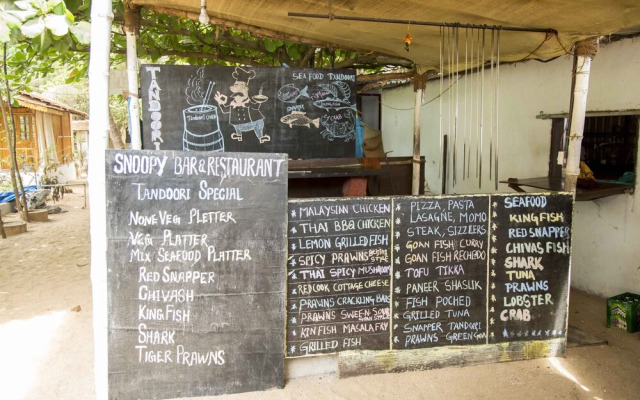 TANDOORI
TANDOORI OVEN
SEA FOOD TANDOORI
CRAB
SNOOPY BAR & RESTAURANT
TANDOORI SPECIAL
NONE VEG PLETTER
VEG PLATTER
MIX SEAFOOD PLATTER
RED SNAPPER
CHIVASH
KING FISH
SHARK
TIGER PRAWNS
* MALAYSIAN CHICKEN
* THAI BBQ CHICKEN
* LEMON GRILLED FISH
* SPICY PRAWNS
* THAI SPICY MUSHROOM
* RED COOK COTTAGE CHEESE
* PRAWNS CRACKLING
* PRAWNS SWEEN SOUR
* KIN FISH MASALA FRY
* GRILLED FISH
* PIZZA, PASTA
LASAGNE, MOMO
* STEAK, SIZZLERS
* GOAN FISH CURRY
* GOAN FISH RECHEDO
* TOFU TIKKA
* PANEER SHASLIK
* FISH POCHED
* GRILLED TUNA
* SNAPPER TANDORI
* PRAWNS GREEN
SEAFOOD
KING FISH
RED SNAPPER
CHIVAS FISH
SHARK
TUNA
PRAWNS
LOBSTER
CRAB